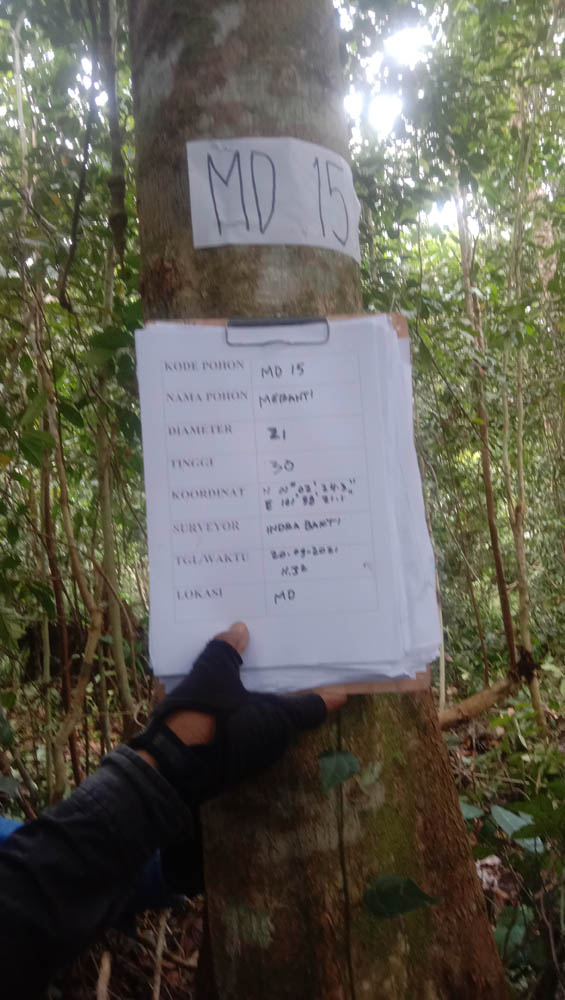 MD 15
KODE POHON MD 15
NAMA POHON MERANTI
DIAMETER 21
TINGGI 30
KOORDINAT N 01° 02' 24.3"
E 101° 98' 21.1"
SURVEYOR INDRA BAKTI
TGL/WAKTU 20.09.2021
11.32
LOKASI MD